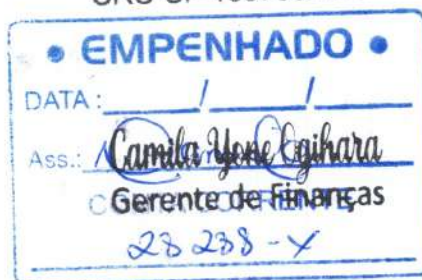 • EMPENHADO •
DATA: / /
Ass.:
Camila Yone Ogihara
Gerente de Finanças
28 238-X